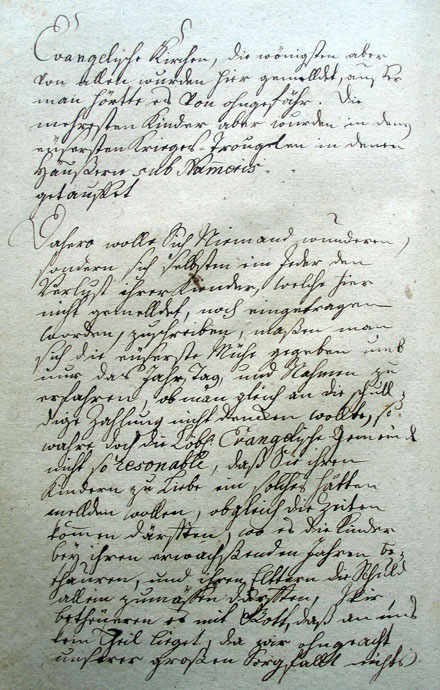 Evangelische Kirchen, die wenigsten aber
von allen wurden hier gemelldet, auß er
man hörtte es von ohngefähr. Die
mehresten Kinder aber wurden in denen
Krieges-Troublen in denen
Häußern sub Numeris
getauffet
Dahero wolle sich Niemand wunderen,
sondern sich selbsten ein Jeder den
Verlust ihrer Kinder, welche hier
nicht gemelldet, noch eingetragen
worden, zuschreiben, maßen man
sich die euserste Mühe gegeben umb
nur das Jahr, Tag, und Nahmen zu
erfahren, ob man gleich an die schull-
dige Zahlung nicht dencken wollte, so
wahre doch die Löbl. Evangelische Gemeinde
nicht so resonable, daß Sie ihren
Kindern zu Liebe ein solches hätten
mellden wollen, obgleich die Zeiten
kommen därfften, wo es die Kinder
bey ihren erwachßenden Jahren be-
thauren, und ihren Elltern die Schuld
allein zumäßen därfften, Wir
betheueren es mit Gott, daß an uns
kein Theil lieget, da wir ohngeacht
unßerer großen Sorgfallt nichts